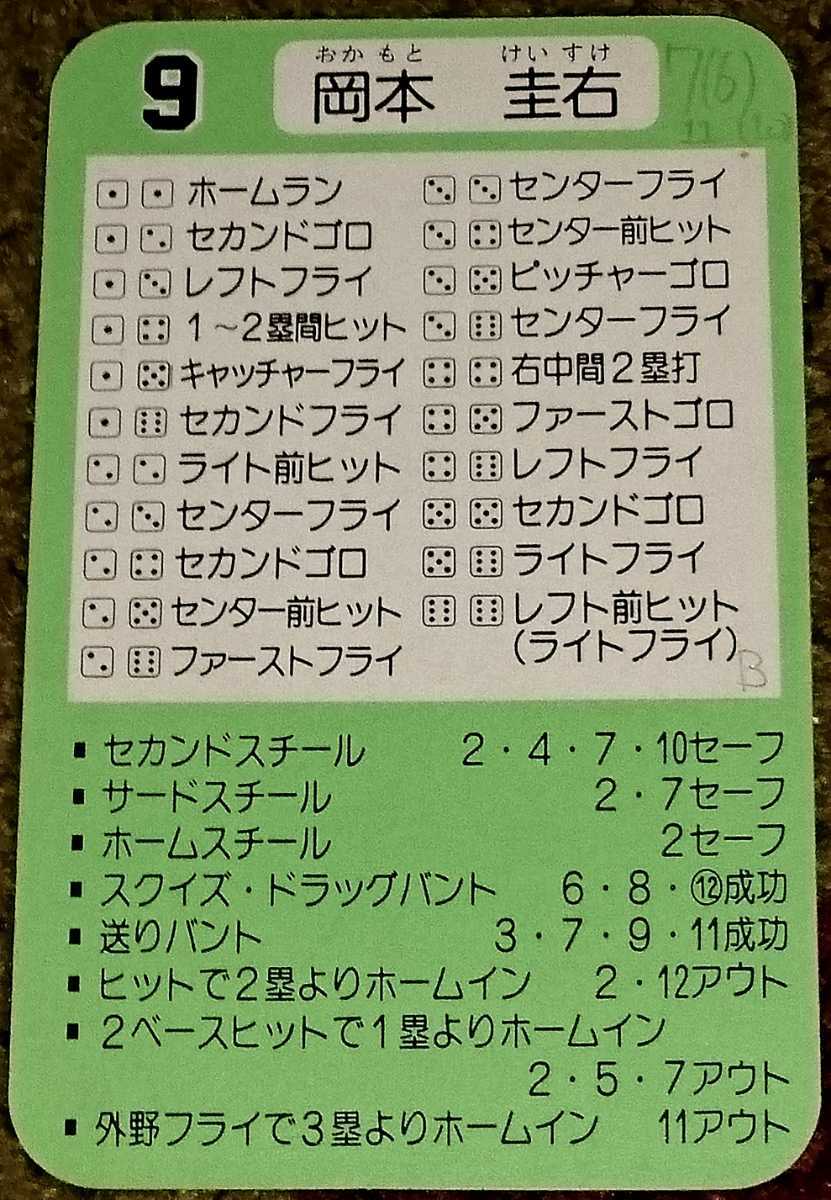 9
おかもと けいすけ
岡本 圭右
7(6)
ホームラン
セカンドゴロ
レフトフライ
1～2塁間ヒット
キャッチャーフライ
セカンドフライ
ライト前ヒット
センターフライ
セカンドゴロ
センター前ヒット
ファーストフライ
センターフライ
センター前ヒット
ピッチャーゴロ
センターフライ
右中間2塁打
ファーストゴロ
レフトフライ
セカンドゴロ
ライトフライ
レフト前ヒット
(ライトフライ)
B
■ セカンドスチール 2・4・7・10セーフ
■ サードスチール 2・7セーフ
■ ホームスチール 2セーフ
■ スクイズ・ドラッグバント 6・8・⑫成功
■ 送りバント 3・7・9・11成功
■ ヒットで2塁よりホームイン 2・12アウト
■ 2ベースヒットで1塁よりホームイン
2・5・7アウト
■ 外野フライで3塁よりホームイン 11アウト